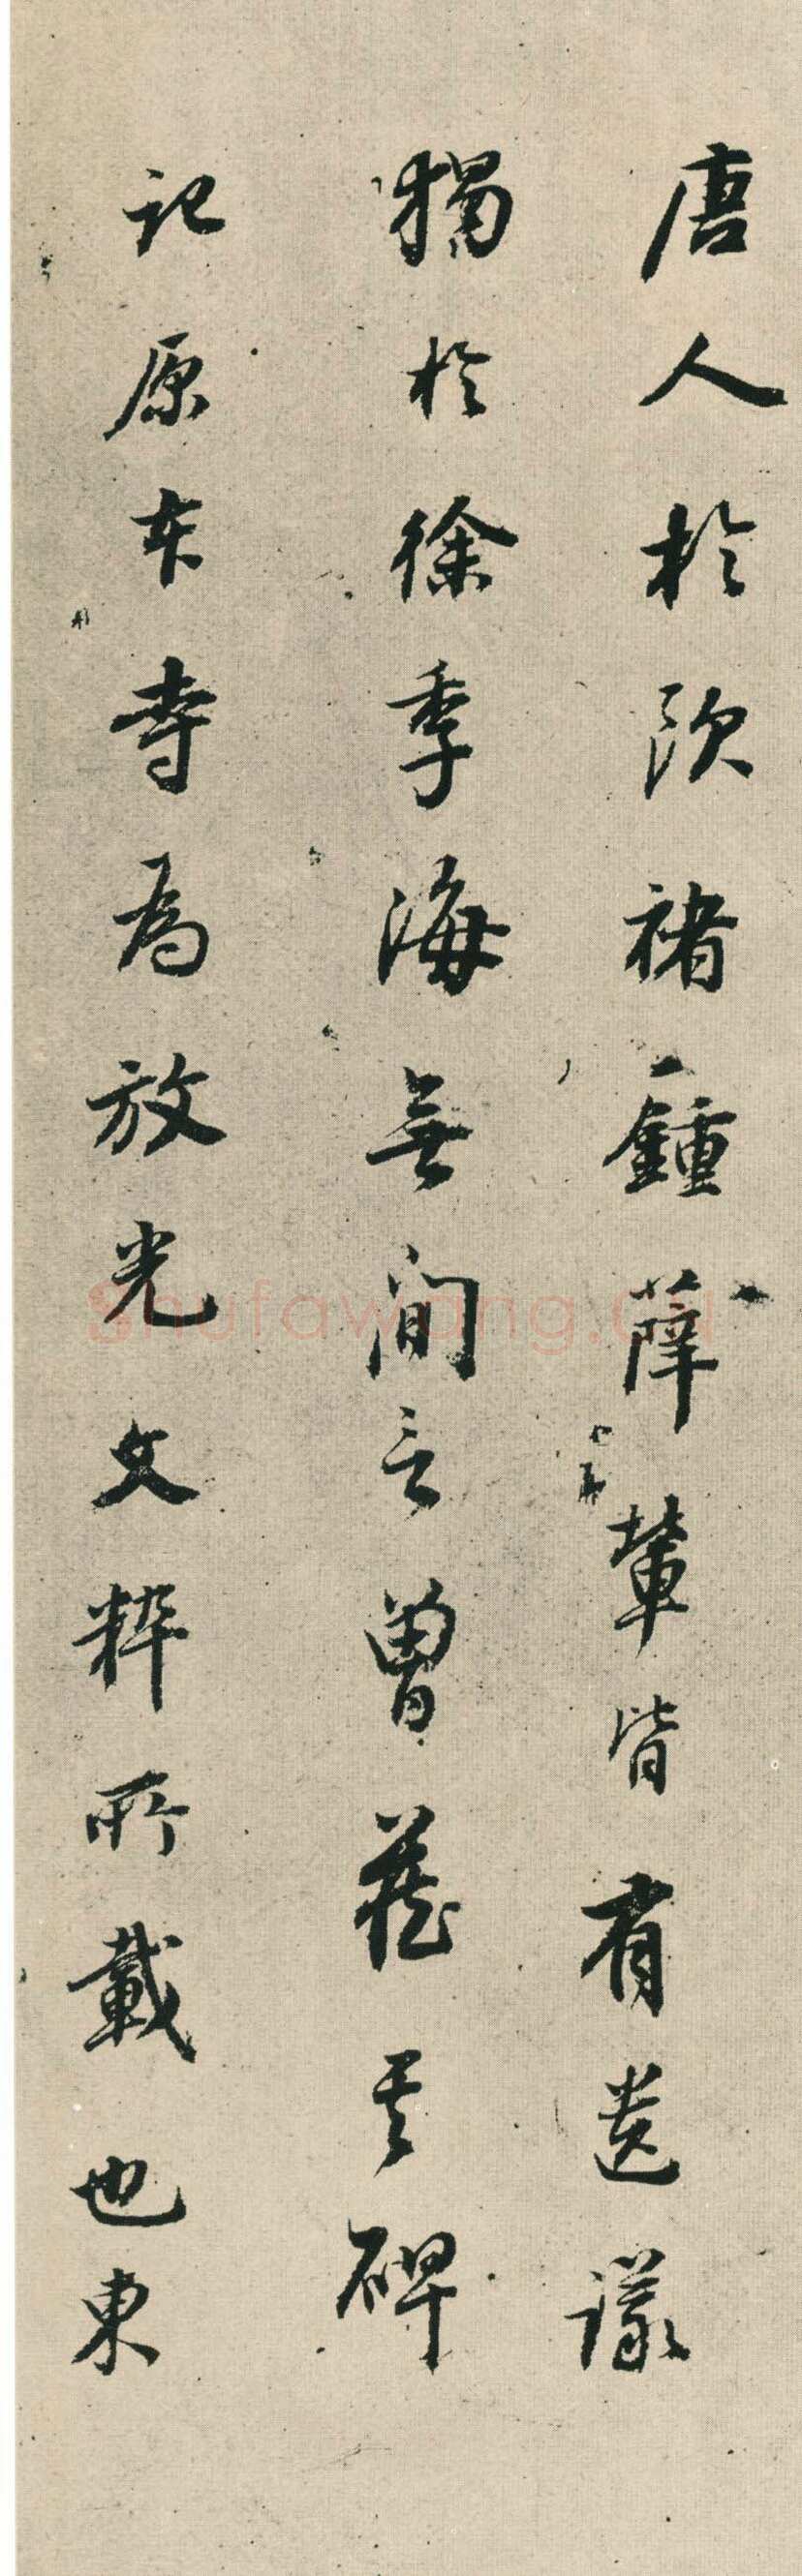 唐人於欧褚鍾薛輩皆有遗議
獨於徐季海無間言曾藏其碑
記原本寺為放光文粹所載也東
shufawang.cn